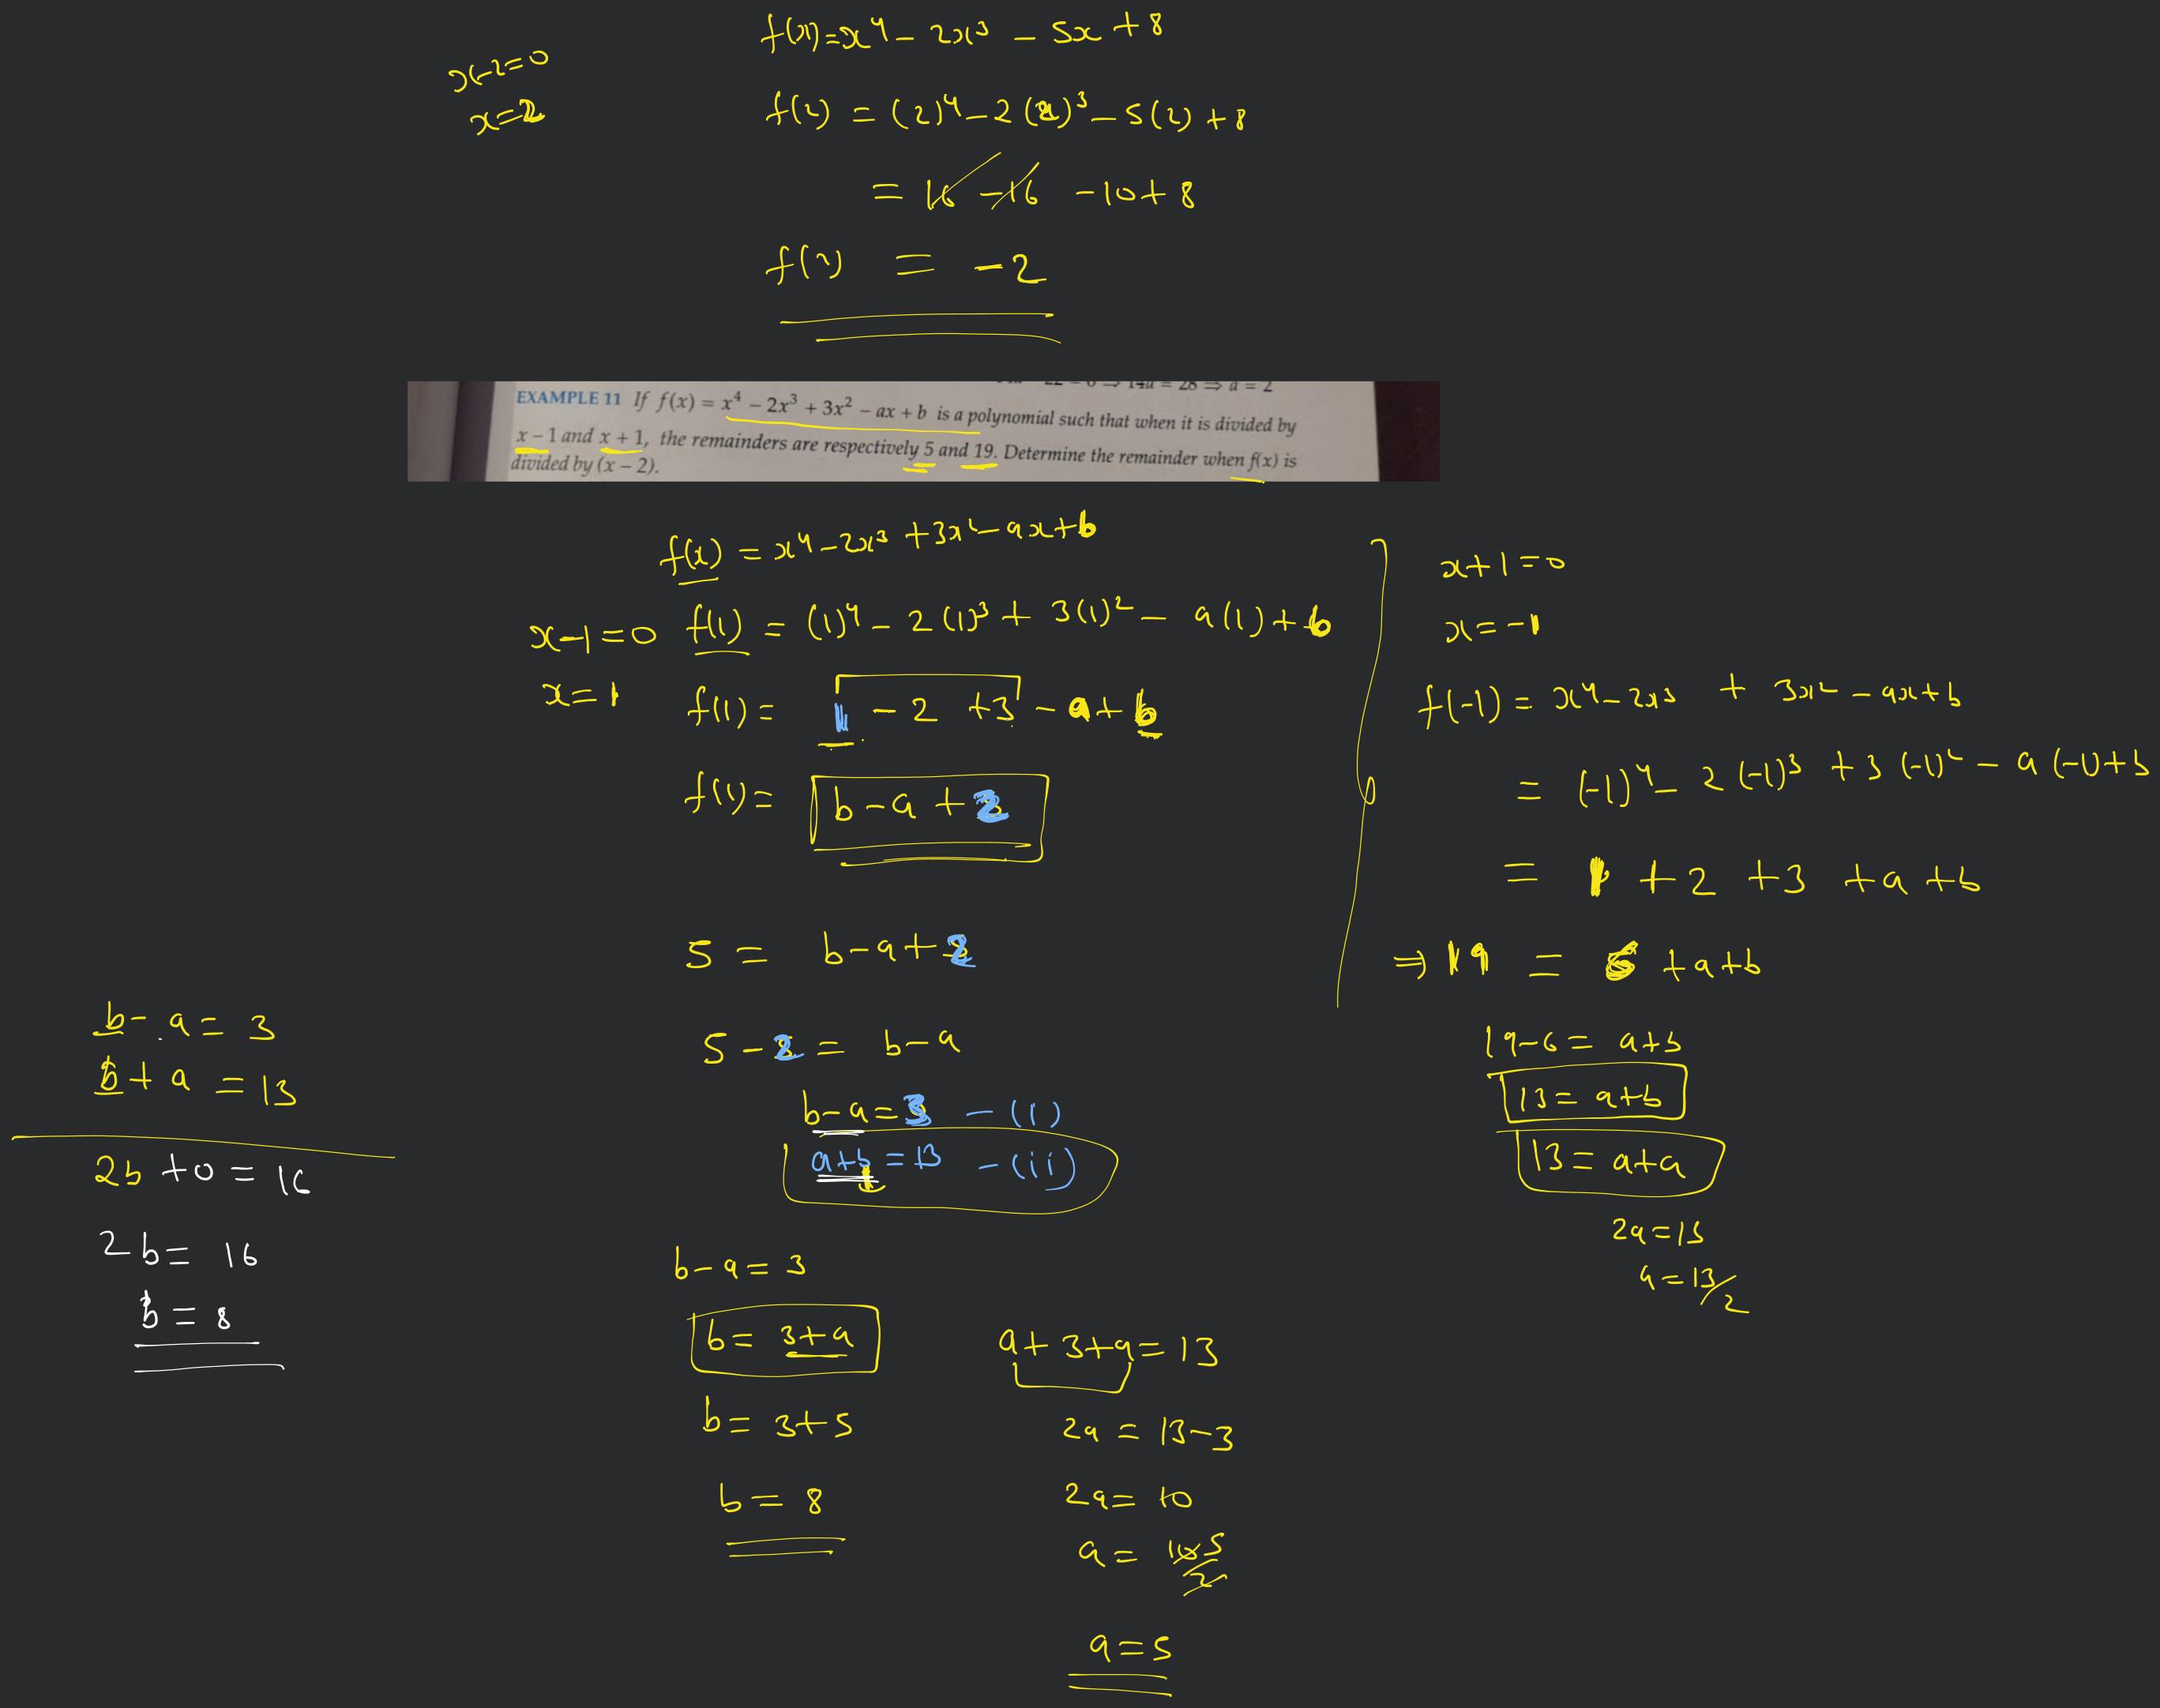 f(x)=x⁴ - 2x³ - 5x + 8
x-2=0
x=2
f(2) = (2)⁴ - 2(2)³ - 5(2) + 8
= 16 - 16 - 10 + 8
f(2) = -2
14a = 28 ⇒ a = 2
EXAMPLE 11 If f(x) = x⁴ - 2x³ + 3x² - ax + b is a polynomial such that when it is divided by
x - 1 and x + 1, the remainders are respectively 5 and 19. Determine the remainder when f(x) is
divided by (x - 2).
f(x) = x⁴ - 2x³ + 3x² - ax + b
x-1=0
x=1
f(1) = (1)⁴ - 2(1)³ + 3(1)² - a(1) + b
f(1) = 1 - 2 + 3 - a + b
f(1) = b - a + 2
5 = b - a + 2
5 - 2 = b - a
b - a = 3 - (i)
a + b = 13 - (ii)
b - a = 3
b = 3 + a
b = 3 + 5
b = 8
a + 3 + a = 13
2a = 13 - 3
2a = 10
a = 10 5
2
a = 5
x+1=0
x=-1
f(-1) = x⁴ - 2x³ + 3x² - ax + b
= (-1)⁴ - 2(-1)³ + 3(-1)² - a(-1) + b
= 1 + 2 + 3 + a + b
⇒ 19 = 6 + a + b
19 - 6 = a + b
13 = a + b
13 = a + a
2a = 13
a = 13/2
b - a = 3
b + a = 13
2b + 0 = 16
2b = 16
b = 8